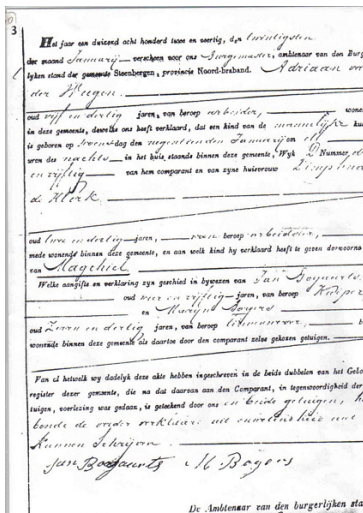 3
Het jaar een duizend acht honderd twee en veertig, den twintigsten
der maand Januarij verscheen voor ons Burgemeester, ambtenaar van den Burg
lyken stand der gemeente Steenbergen, provincie Noord-braband. Adriaan
der Weegen
oud vijf en dertig jaren, van beroep arbeider, wone
in deze gemeente, dewelke ons heeft verklaard, dat een kind van de mannelijke kun
is geboren op Woensdag den negentienden Januarij om elf
uren des nachts in het huis staande binnen deze gemeente, Wyk D Nummer
en vijftig van hem comparant en van zyne huisvrouw
de Klerk
oud twee en dertig jaren, van beroep arbeidster,
mede wonende binnen deze gemeente, en aan welk kind hy verklaard heeft te geven den voorna
van Magchiel
Welke aangifte en verklaring zyn geschied in bywezen van Jan Bogaerts
oud vier en vijftig jaren, van beroep Kuiper
en Maryn Bogers
oud Zeven en dertig jaren, van beroep
wonende binnen deze gemeente als daartoe door den comparant zelve gekozen getuigen.
Van al hetwelk wy dadelyk deze akte hebben ingeschreven in de beide dubbelen van het Gebo
register dezer gemeente, die na dat daarvan aan den Comparant, in tegenwoordigheid der
tuigen, voorlezing was gedaan, is geteekend door ons en beide getuigen,
bende de vader verklaard uit onwetendheid niet
kunnen Schrijven
Jan Bogaerts M Bogers
De Ambtenaar van den burgerlijken sta